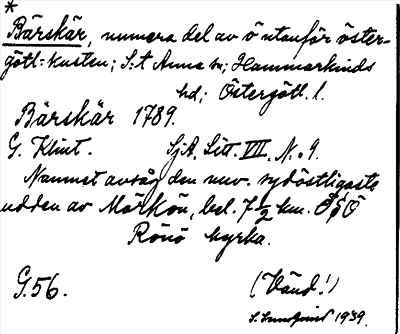 *
Bärskär, numera del av ö utanför öster-
götl:kusten; S:t Anna sn; Hammarkinds
hd; Östergötl. l.
Bärskär 1789.
G. Klint. SjA. Litt. VII, N:o 9.
Namnet avsåg den nuv. sydöstligaste
udden av Mörkön, bel. 7 1/2 km. OSO
Rönö kyrka.
G.56. (Vänd!)
S. Sundqvist 1939.